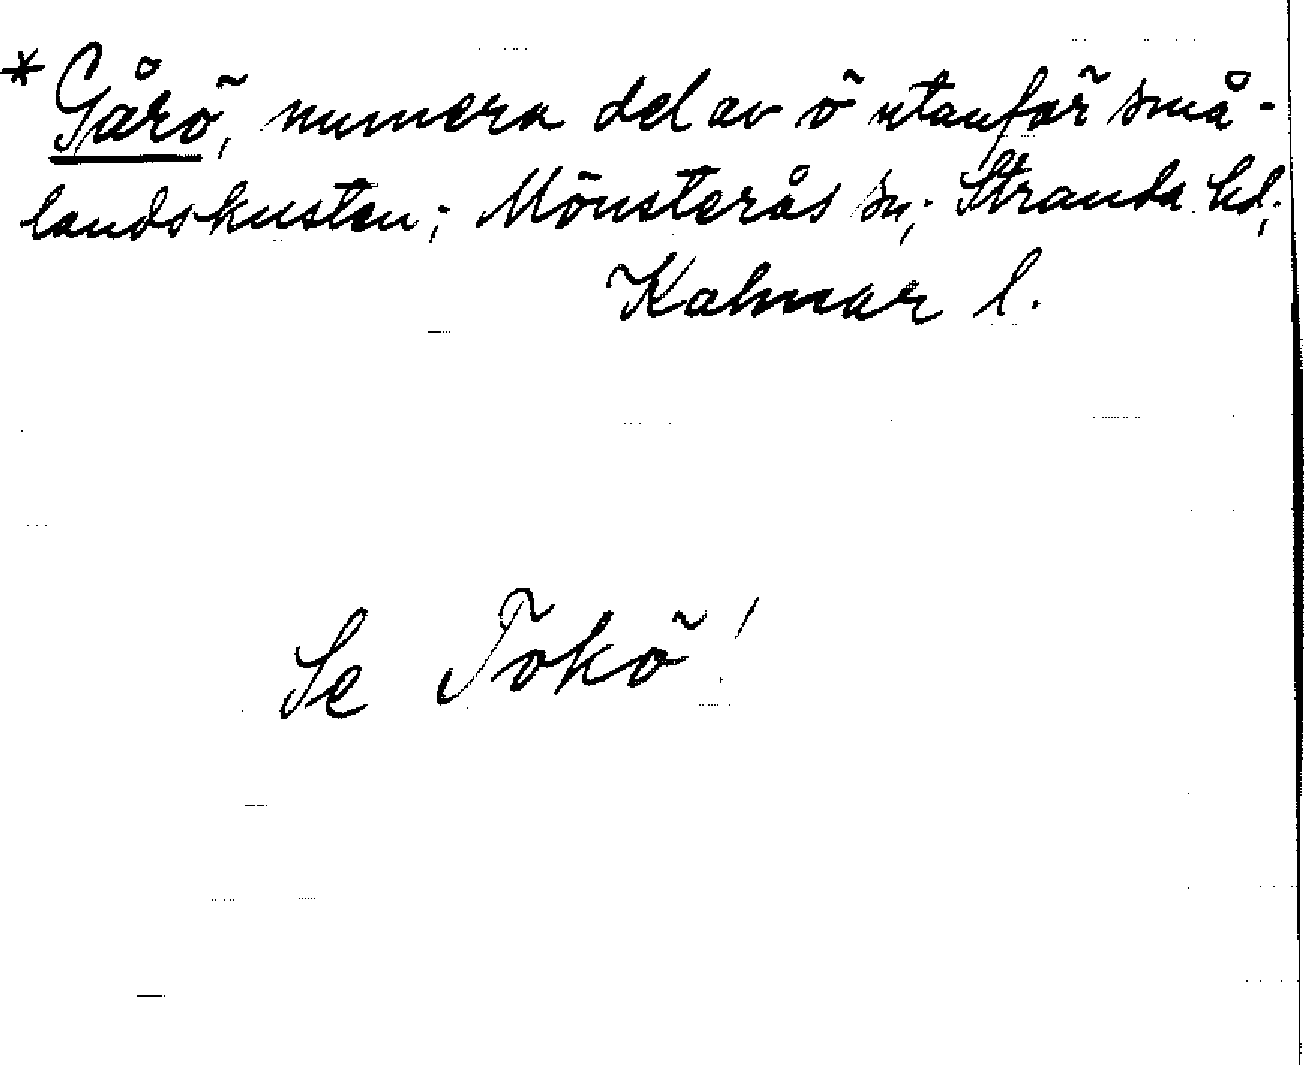 * Gårö, numera del av ö utanför små-
landskusten; Mönsterås sn; Stranda hd;
Kalmar l.
Se Tokö!